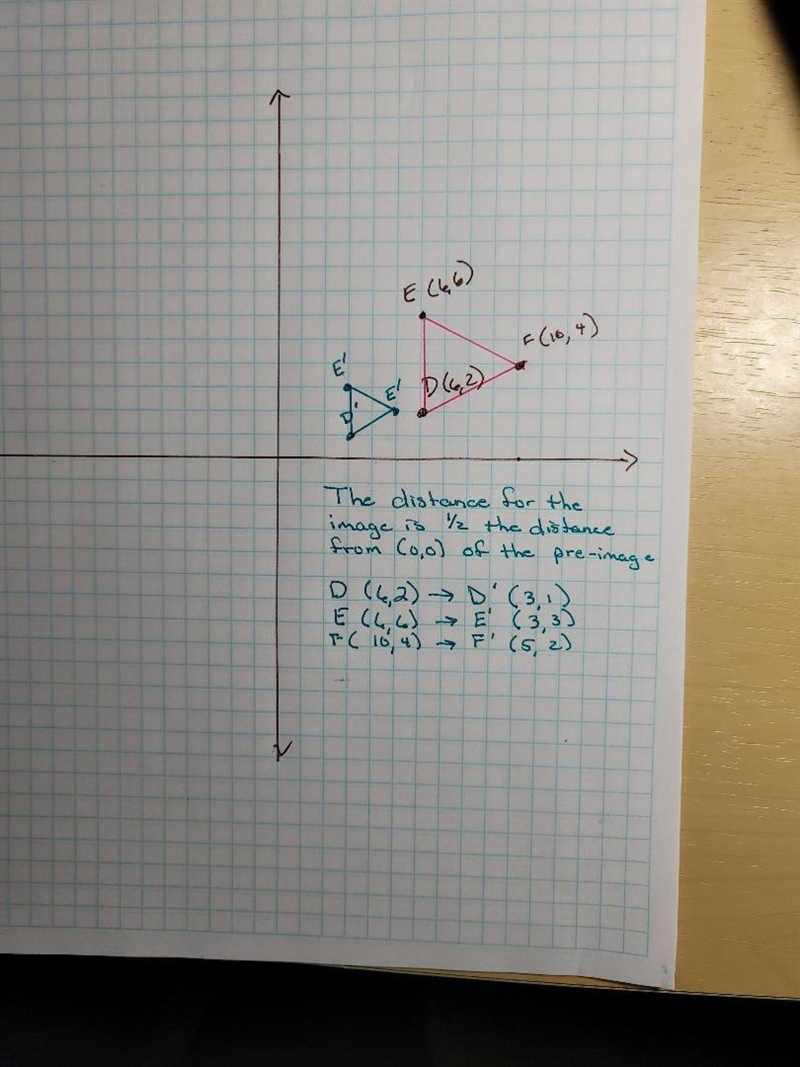 E (6,6)
F (10, 4)
E'
E'
D(6,2)
D'
The distance for the
image is 1/2 the distance
from (0,0) of the pre-image
D (6,2) → D' (3,1)
E (6,6) → E' (3,3)
F( 10,4) → F' (5,2)